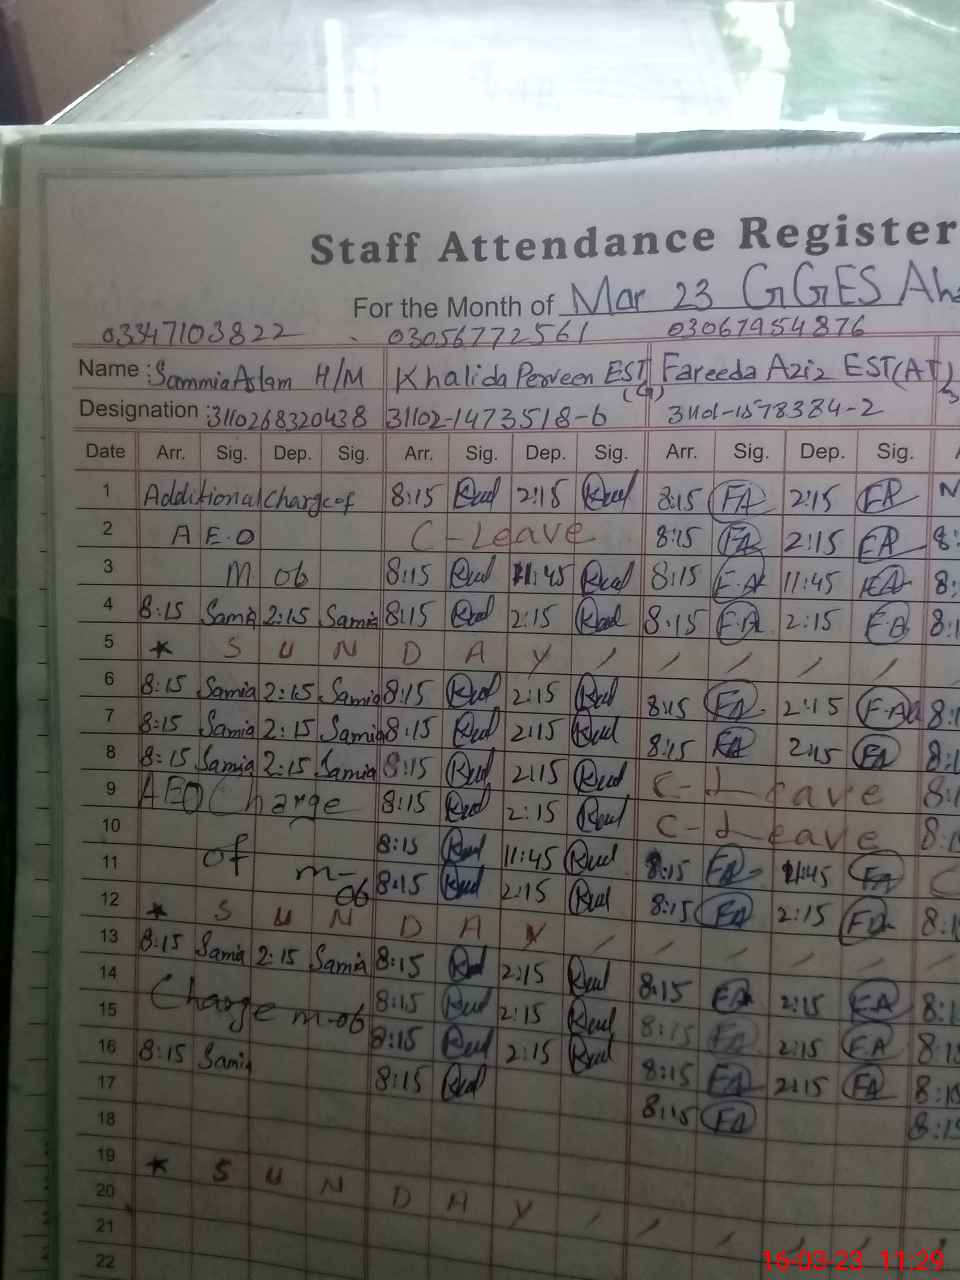 Staff Attendance Register
For the Month of Mar 23 GGES
03347103822 03056772561 03067954876
Name : Sammia Aslam H/M Khalida Perveen EST (G) Fareeda Aziz EST(AT)
Designation : 3110268320438 31102-1473518-6 3101-1578384-2
Date Arr. Sig. Dep. Sig. Arr. Sig. Dep. Sig. Arr. Sig. Dep. Sig.
1 Additional charge of 8:15 2:15 8:15 FA 2:15 FA
2 A E.O C-Leave 8:15 FA 2:15 FA 8:
3 M ob 8:15 11:45 8:15 F.A 11:45 FA 8:
4 8:15 Samia 2:15 Samia 8:15 2:15 8:15 F.A 2:15 F.A 8:1
5 * S U N D A Y / / / / /
6 8:15 Samia 2:15 Samia 8:15 2:15 8:15 FA 2:15 F.A 8:1
7 8:15 Samia 2:15 Samia 8:15 2:15 8:15 FA 2:15 FA 8:1
8 8:15 Samia 2:15 Samia 8:15 2:15 C-Leave 8:1
9 AEO Charge 8:15 2:15 C-Leave 8:1
10 of m-ob 8:15 11:45 8:15 FA 11:45 FA
11 8:15 2:15 8:15 FA 2:15 FA 8:1
12 * S U N D A Y / / / / /
13 8:15 Samia 2:15 Samia 8:15 2:15 8:15 FA 2:15 FA 8:1
14 Charge m-ob 8:15 2:15 8:15 FA 2:15 F.A 8:15
15 8:15 2:15 8:15 FA 2:15 FA 8:15
16 8:15 Samia 8:15 8:15 FA 8:15
17
18
19 * S U N D A Y / / / / /
20
21
22
16-03-23 11:29